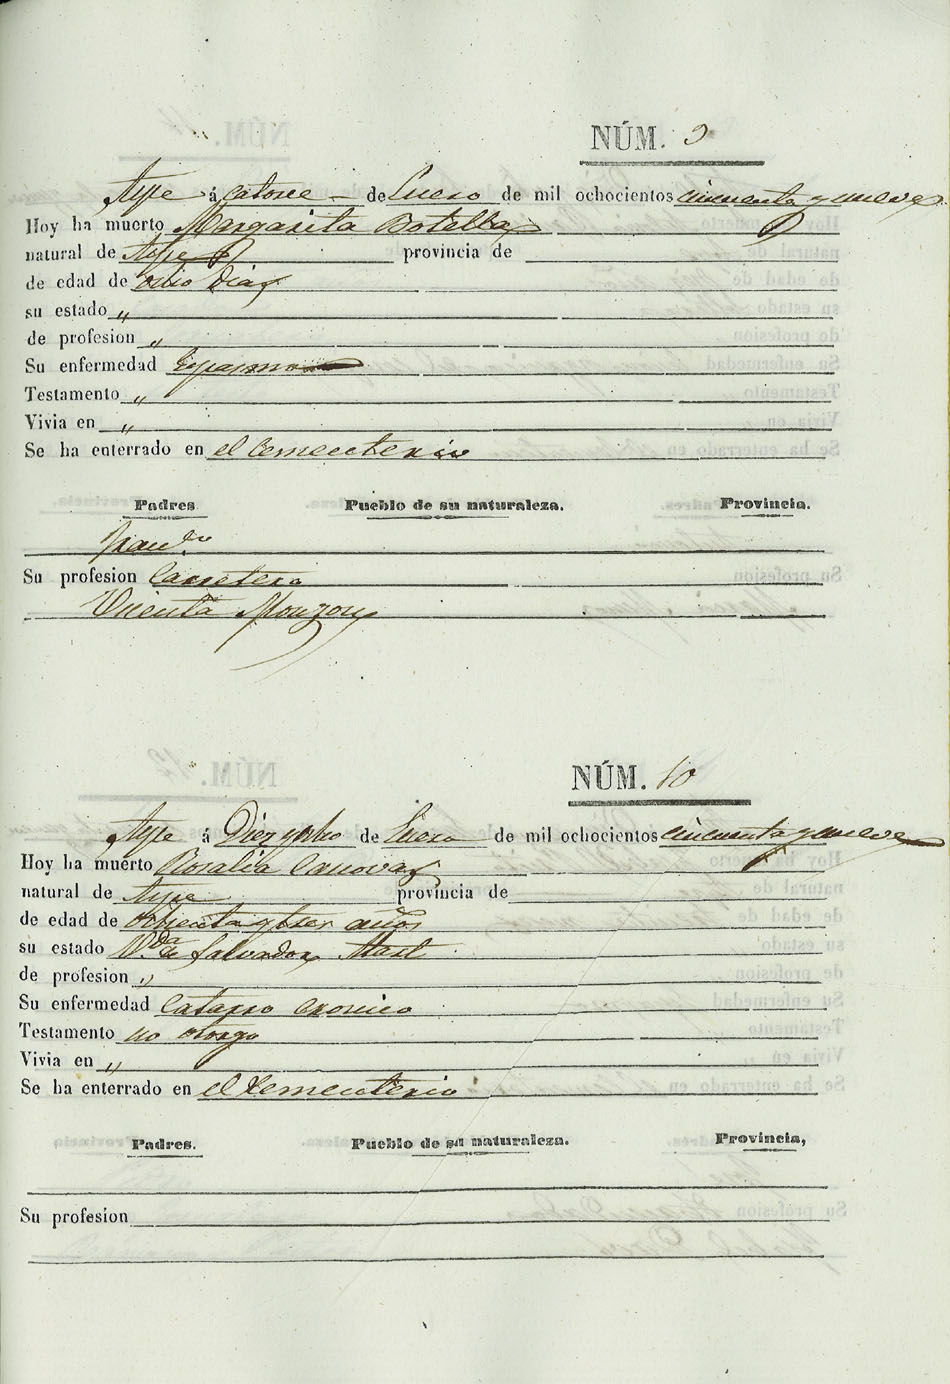 NÚM. 9
Aspe á catorce de Enero de mil ochocientos cincuenta y nueve
Hoy ha muerto Margarita Botella
natural de Aspe provincia de
de edad de ocho dias
su estado "
de profesion "
Su enfermedad Espasmo
Testamento "
Vivia en "
Se ha enterrado en el Cementerio
Padres Pueblo de su naturaleza. Provincia.
Franco
Su profesion Carretero
Vicenta Monzon
NÚM. 10
Aspe á Diez y ocho de Enero de mil ochocientos cincuenta y nueve
Hoy ha muerto Rosalia Canovas
natural de Aspe provincia de
de edad de ochenta y tres años
su estado Vda de Salvador
de profesion "
Su enfermedad Catarro cronico
Testamento no otorgo
Vivia en "
Se ha enterrado en el Cementerio
Padres. Pueblo de su naturaleza. Provincia,
Su profesion